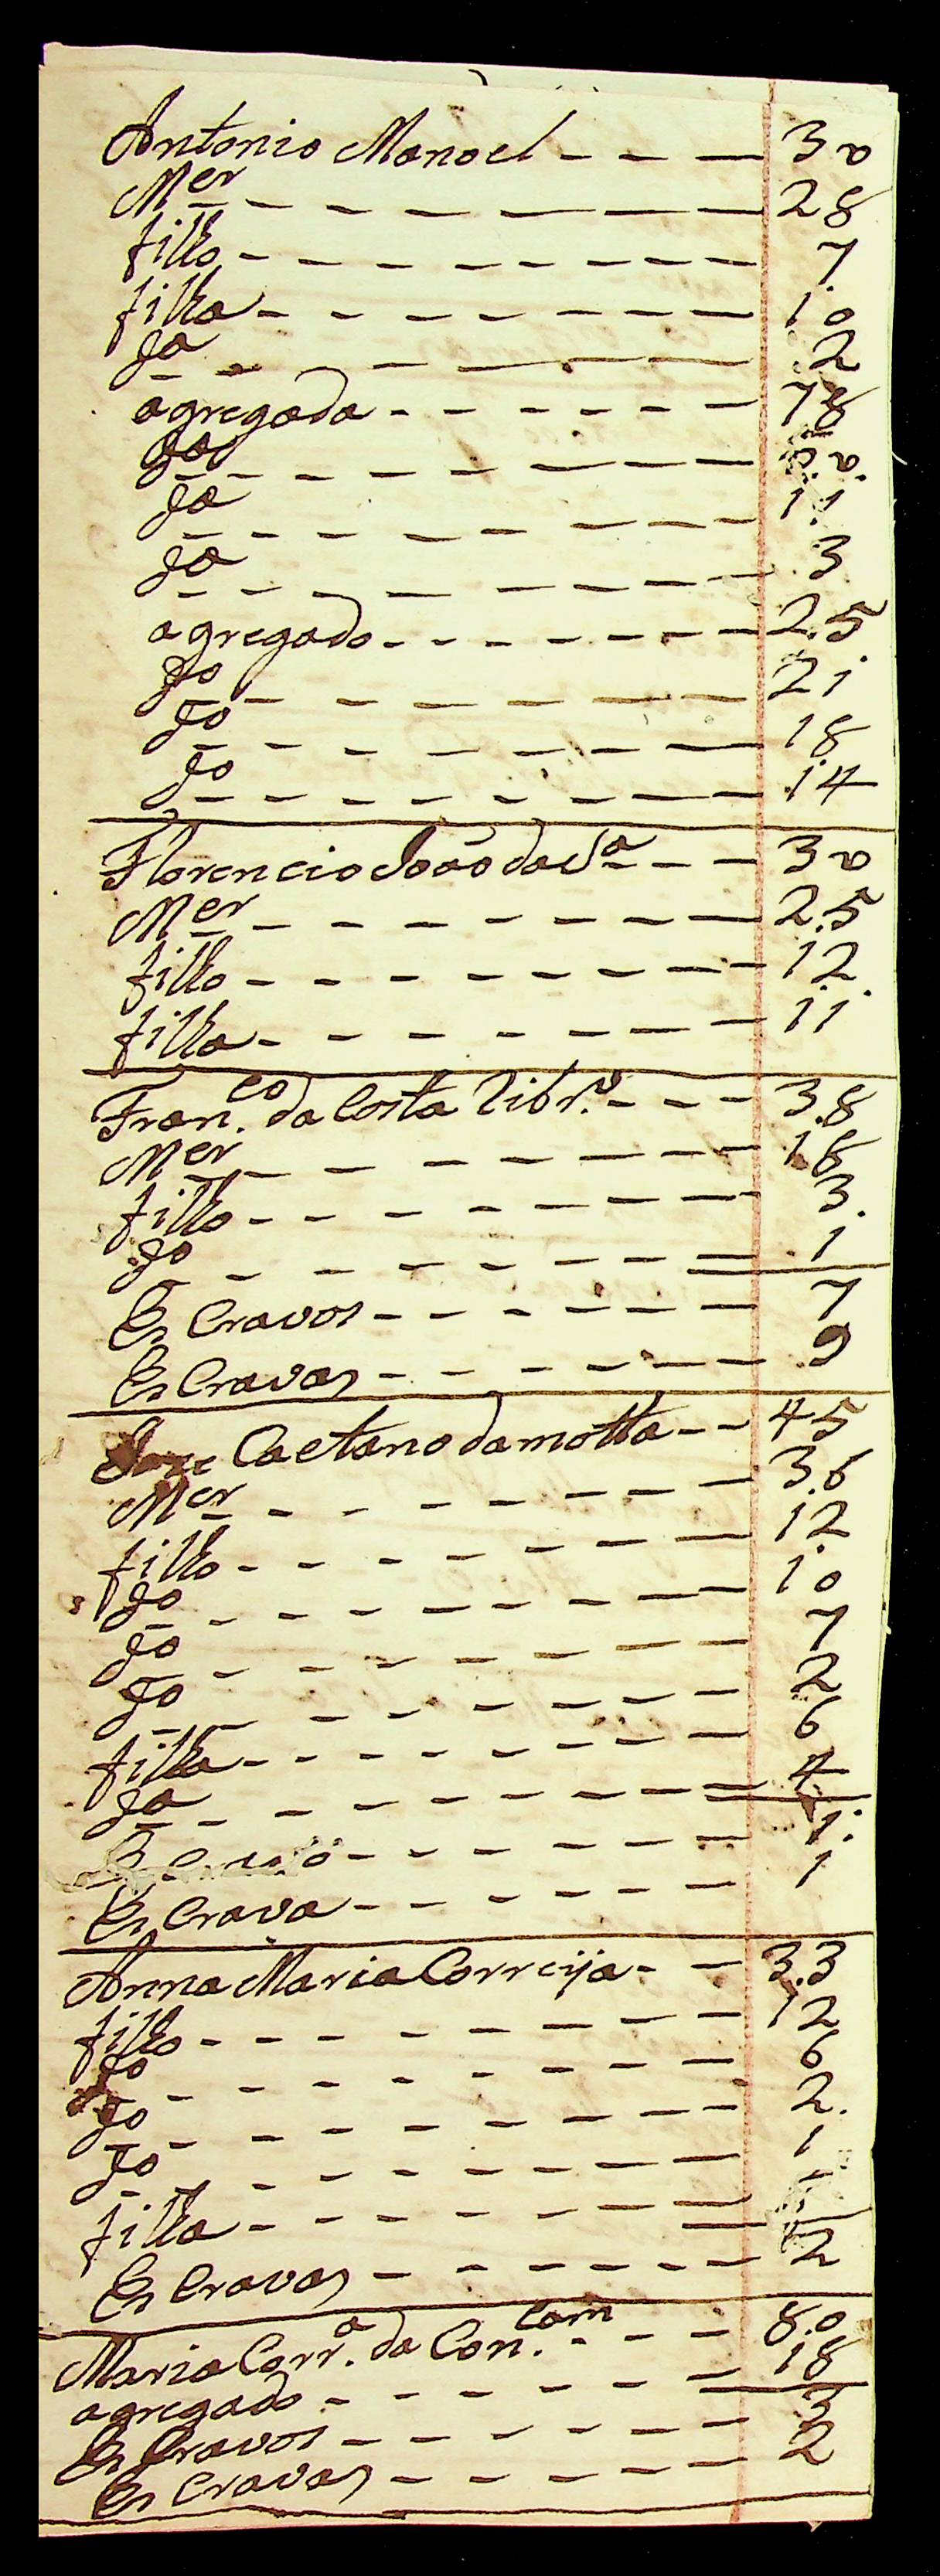 Antonio Manoel - - - 30
Mer - - - - - - - 28
filho - - - - - - - - - 7
filha - - - - - - - - 10
da - - - - - - - 2
agregada - - - - - - 78
da - - - - - - -
da - - - - - - - - 11
da - - - - - - - - 3
agregado - - - - - - - - 25
do - - - - - - - 21
do - - - - - - - - 18
do - - - - - - - - 14
Florencio João da Sa - - - 30
Mer - - - - - - - - 25
filho - - - - - - - - 12
filha - - - - - - - - 11
Franco. da Costa Libro. - - - 38
Mer - - - - - - - - 18
filho - - - - - - - - 3
do - - - - - - - 1
Es Cravos - - - - - - 7
Es Cravas - - - - - - 9
Caetano da motta - - 45
Mer - - - - - - - - 36
filho - - - - - - - - 12
do - - - - - - - - 10
do - - - - - - - - 7
do - - - - - - - - 2
filha - - - - - - - - 6
da - - - - - - - - 4
- - - - - - 1
Es Crava - - - - - - 1
Anna Maria Correija - - 33
filho - - - - - - - - 12
do - - - - - - - - 6
do - - - - - - - - 2
do - - - - - - - - 1
filha - - - - - - -
Es Cravas - - - - - - 2
Maria Corra. da Con.cam - - - 80
agregado - - - - - - 18
Es Cravos - - - - - - 3
Es Cravas - - - - - 2